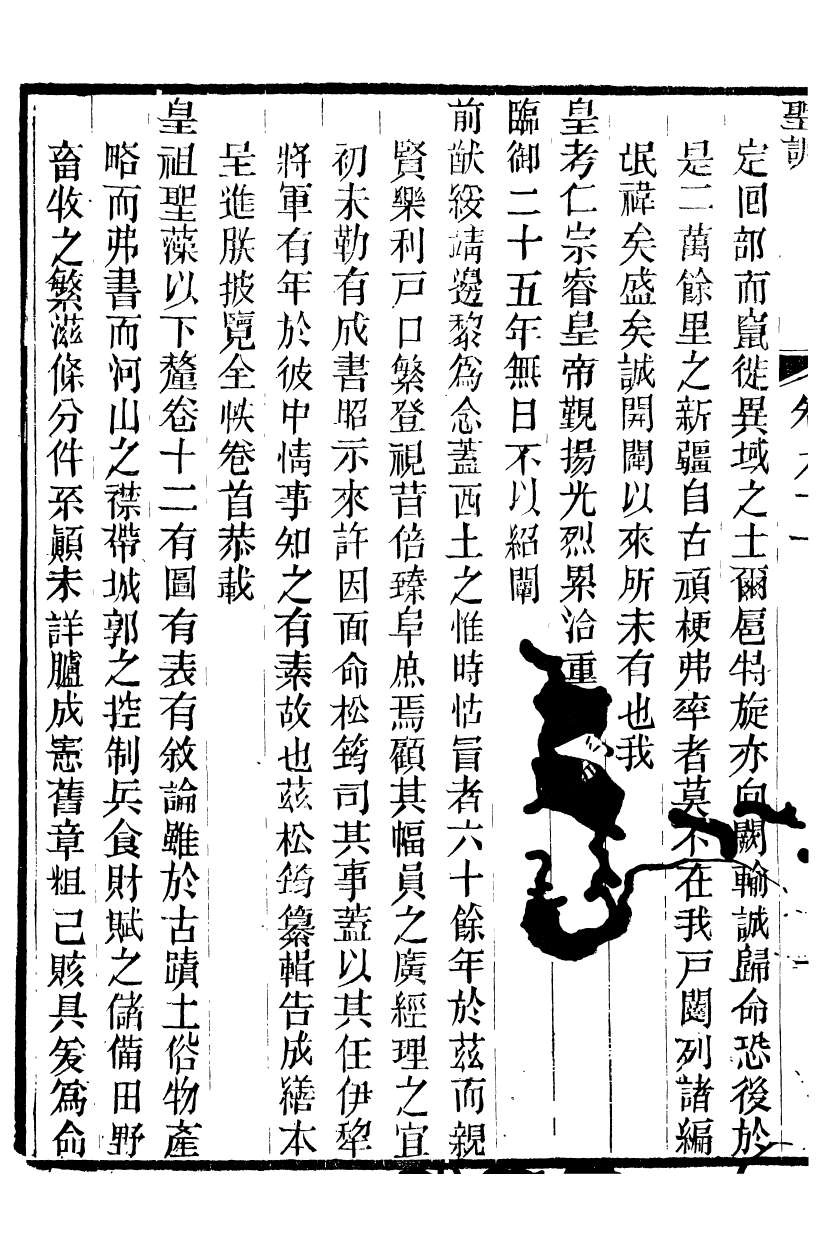 聖訓
定回部而竄徙異域之土爾扈特旋亦向闕輸誠歸命恐後於
是二萬餘里之新疆自古頑梗弗率者莫不在我戸闥列諸編
氓禕矣盛矣誠開闢以來所未有也我
皇考仁宗睿皇帝覲揚光烈累洽重
臨御二十五年無日不以紹闡
前猷綏靖邊黎爲念蓋西土之惟時怙冒者六十餘年於茲而親
賢樂利戸口繁登視昔倍臻阜庶焉顧其幅員之廣經理之宜
初未勒有成書昭示來許因面命松筠司其事蓋以其任伊犂
將軍有年於彼中情事知之有素故也茲松筠纂輯告成繕本
呈進朕披覽全帙卷首恭載
皇祖聖藻以下釐卷十二有圖有表有敘論雖於古蹟土俗物產
略而弗書而河山之襟帶城郭之控制兵食財賦之儲備田野
畜牧之繁滋條分件系顚末詳臚成憲舊章粗已賅具爰爲命